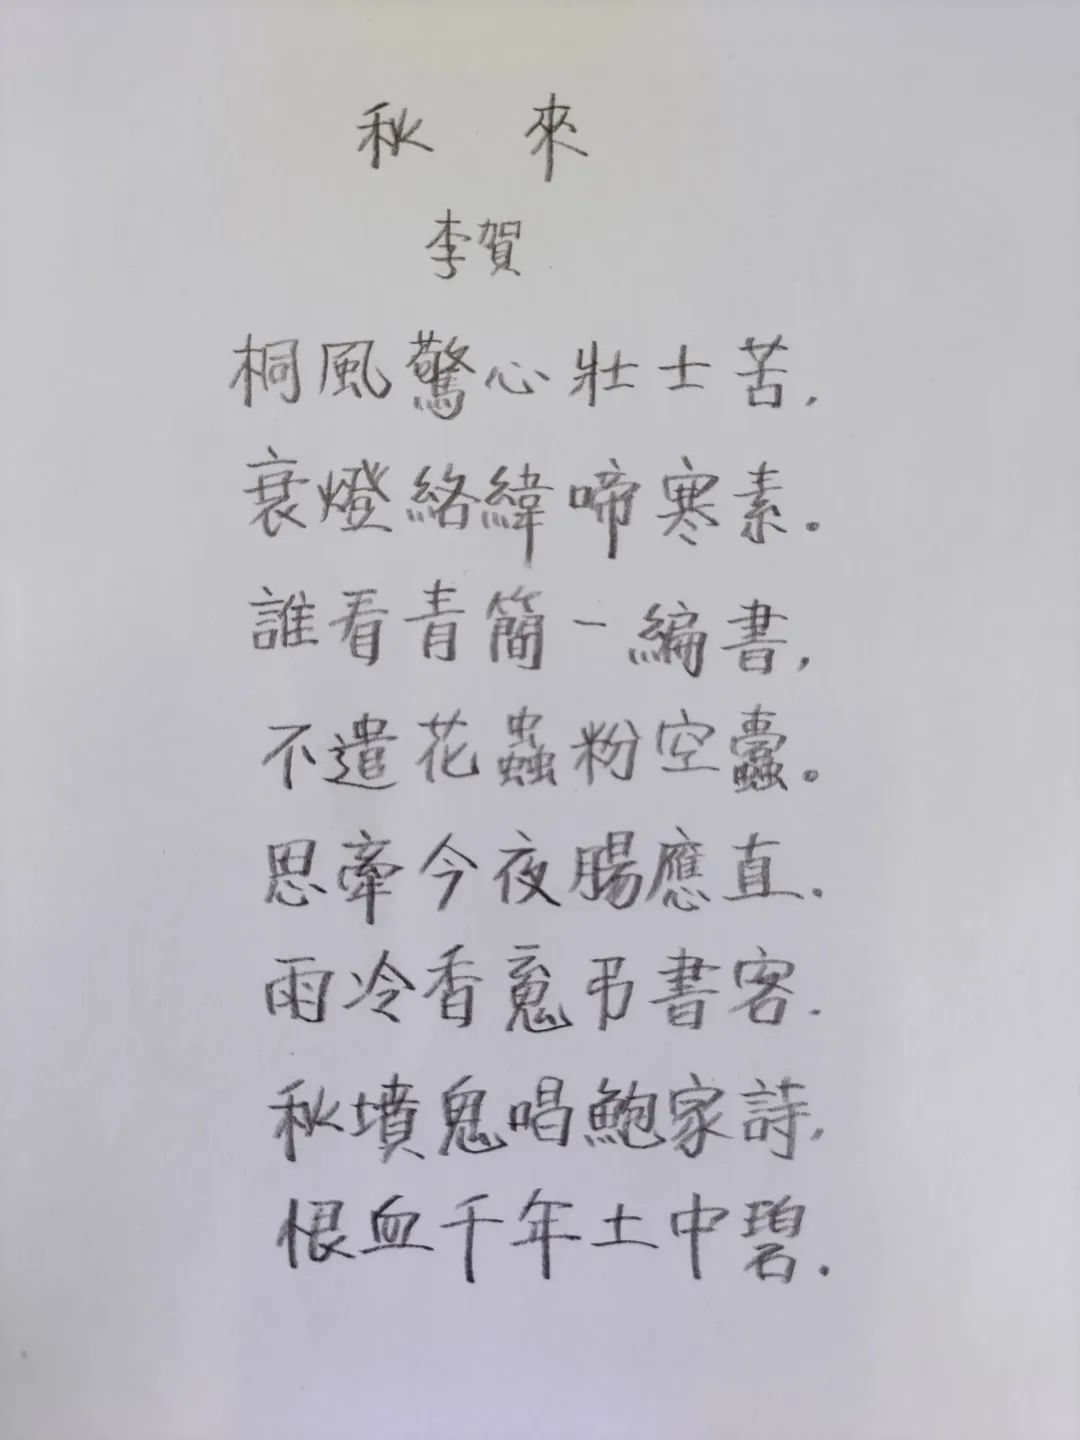 秋來
李賀
桐風驚心壯士苦,
衰燈絡緯啼寒素.
誰看青簡一編書,
不遣花蟲粉空蠹。
思牽今夜腸應直.
雨冷香魂弔書客.
秋墳鬼唱鮑家詩,
恨血千年土中碧.